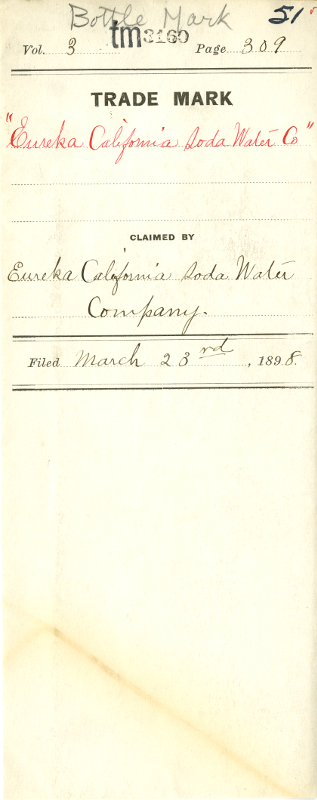 Bottle Mark 51
tm3160
Vol. 3 Page 309
TRADE MARK
"Eureka California Soda Water Co"
CLAIMED BY
Eureka California Soda Water
Company.
Filed March 23rd, 1898.